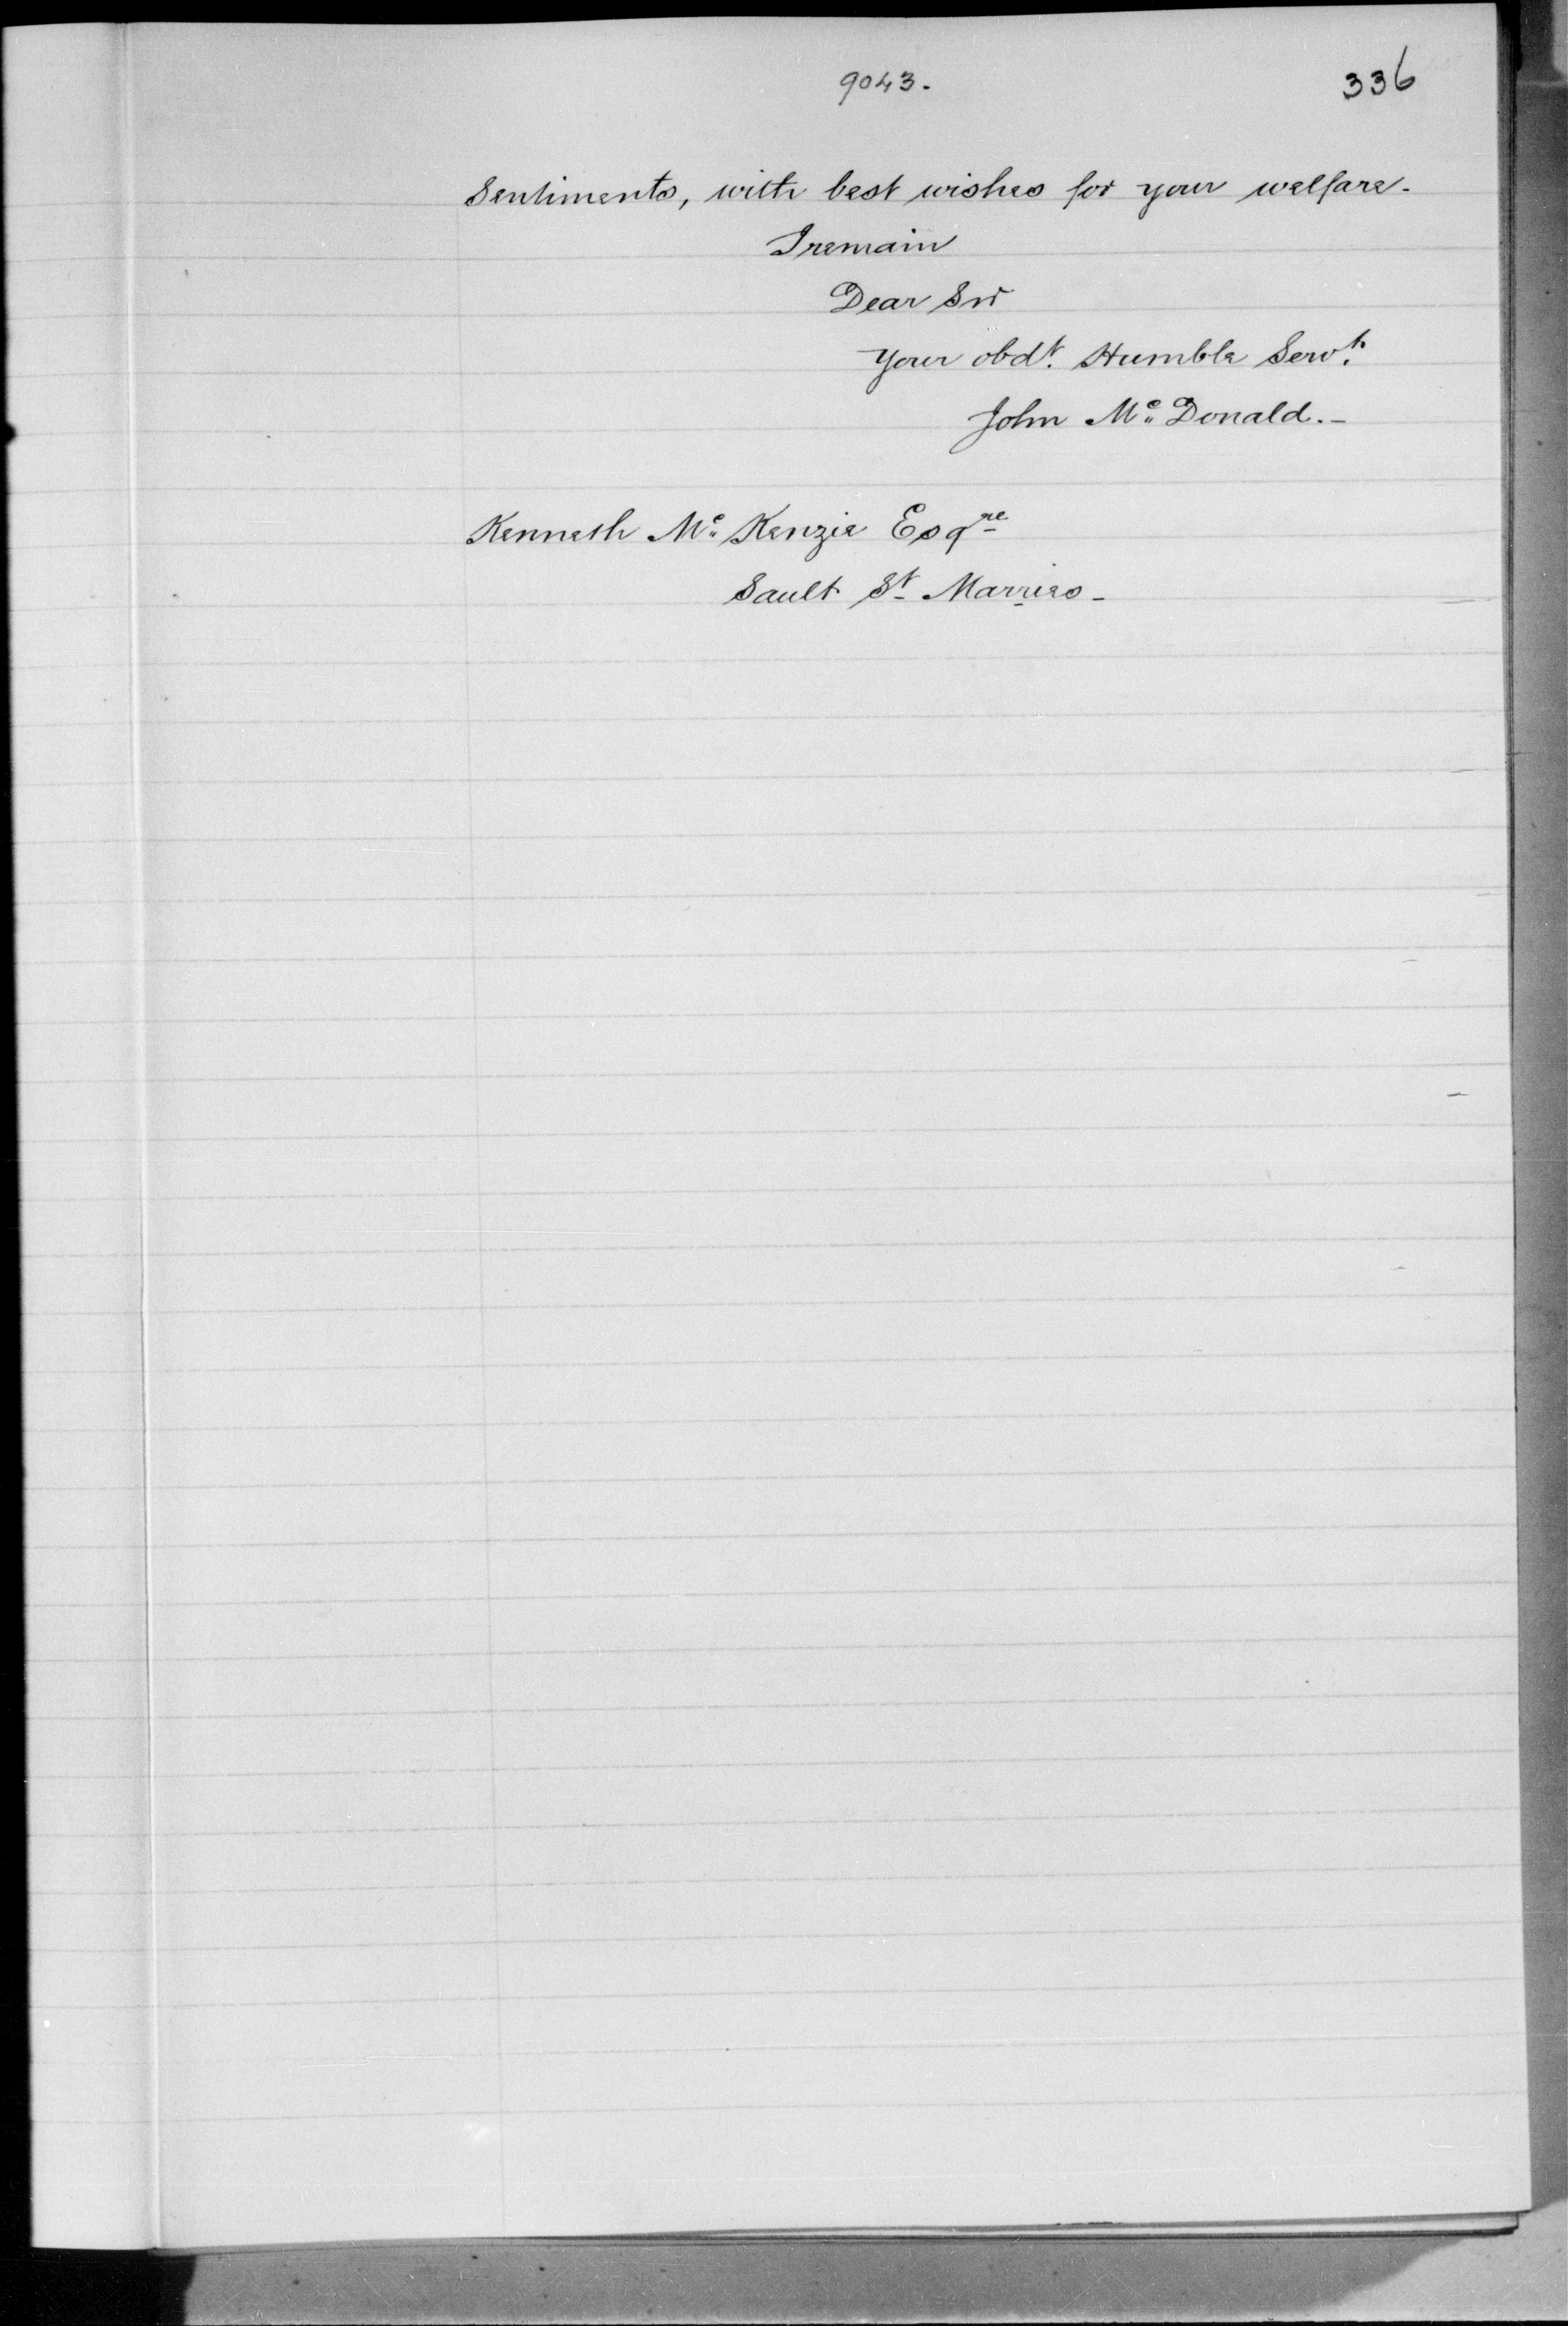 9043. 336
Sentiments, with best wishes for your welfare.
I remain
Dear Sir
Your obdt. Humble Servt.
John Mc Donald.-
Kenneth Mc Kenzie Esqre
Sault St Marries-